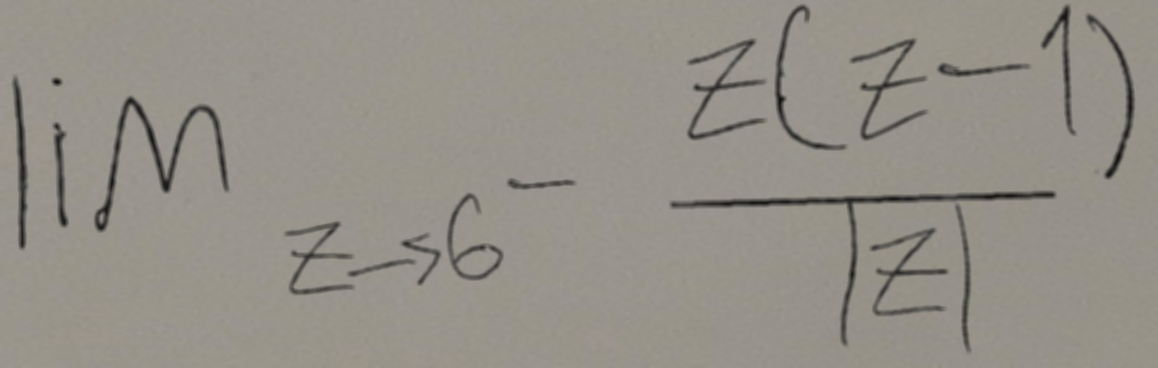 lim z→6⁻ z(z-1)/|z|